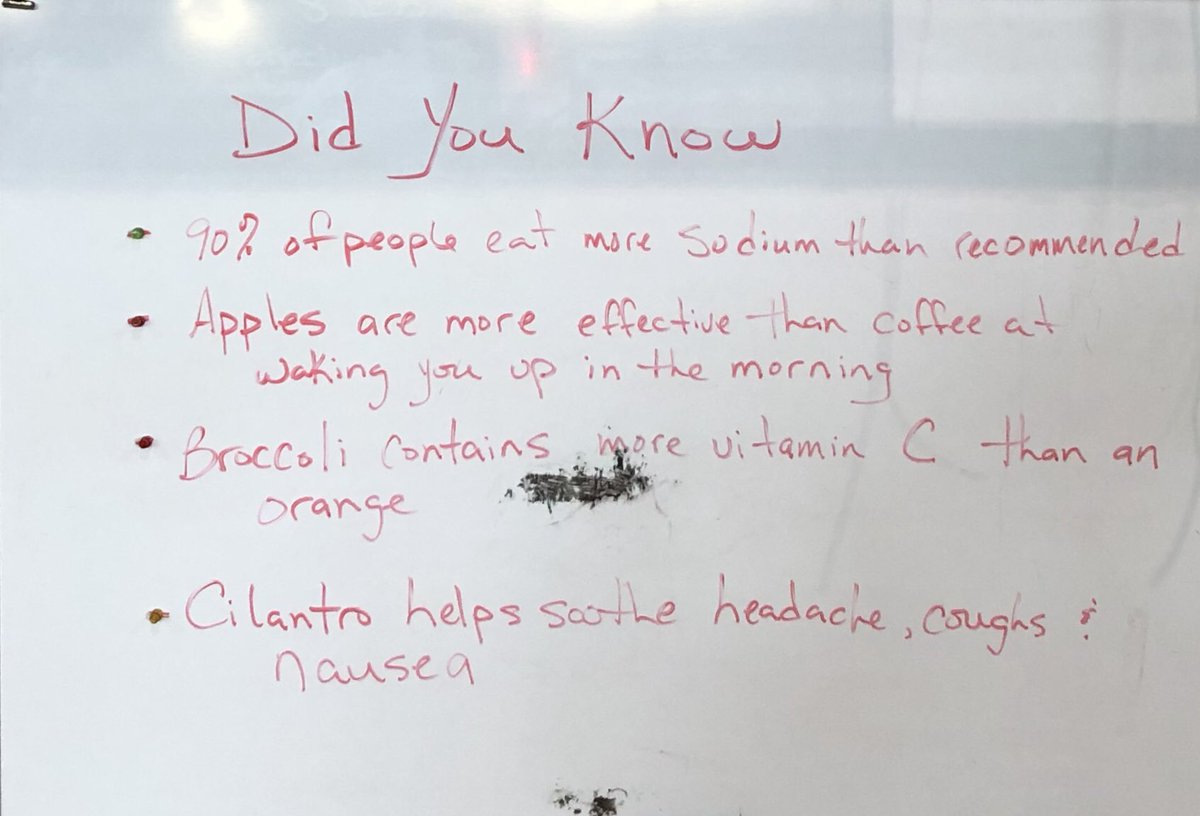 Did You Know
• 90% of people eat more sodium than recommended
• Apples are more effective than coffee at
waking you up in the morning
• Broccoli contains more vitamin C than an
orange
• Cilantro helps soothe headache, coughs &
nausea